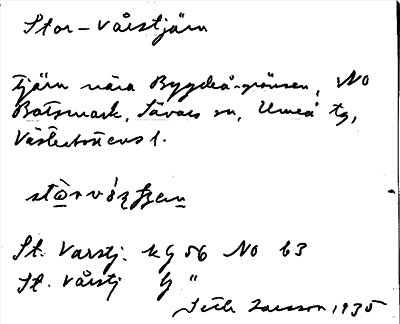 Stor-Vårstjärn
Tjärn nära Bygdeå-gränsen, NO
Botsmark, Sävars sn, Umeå tg,
Västerbottens l.
St. Varstj. kG 56 NO 63
St. Vårstj G "
Larsson 1935